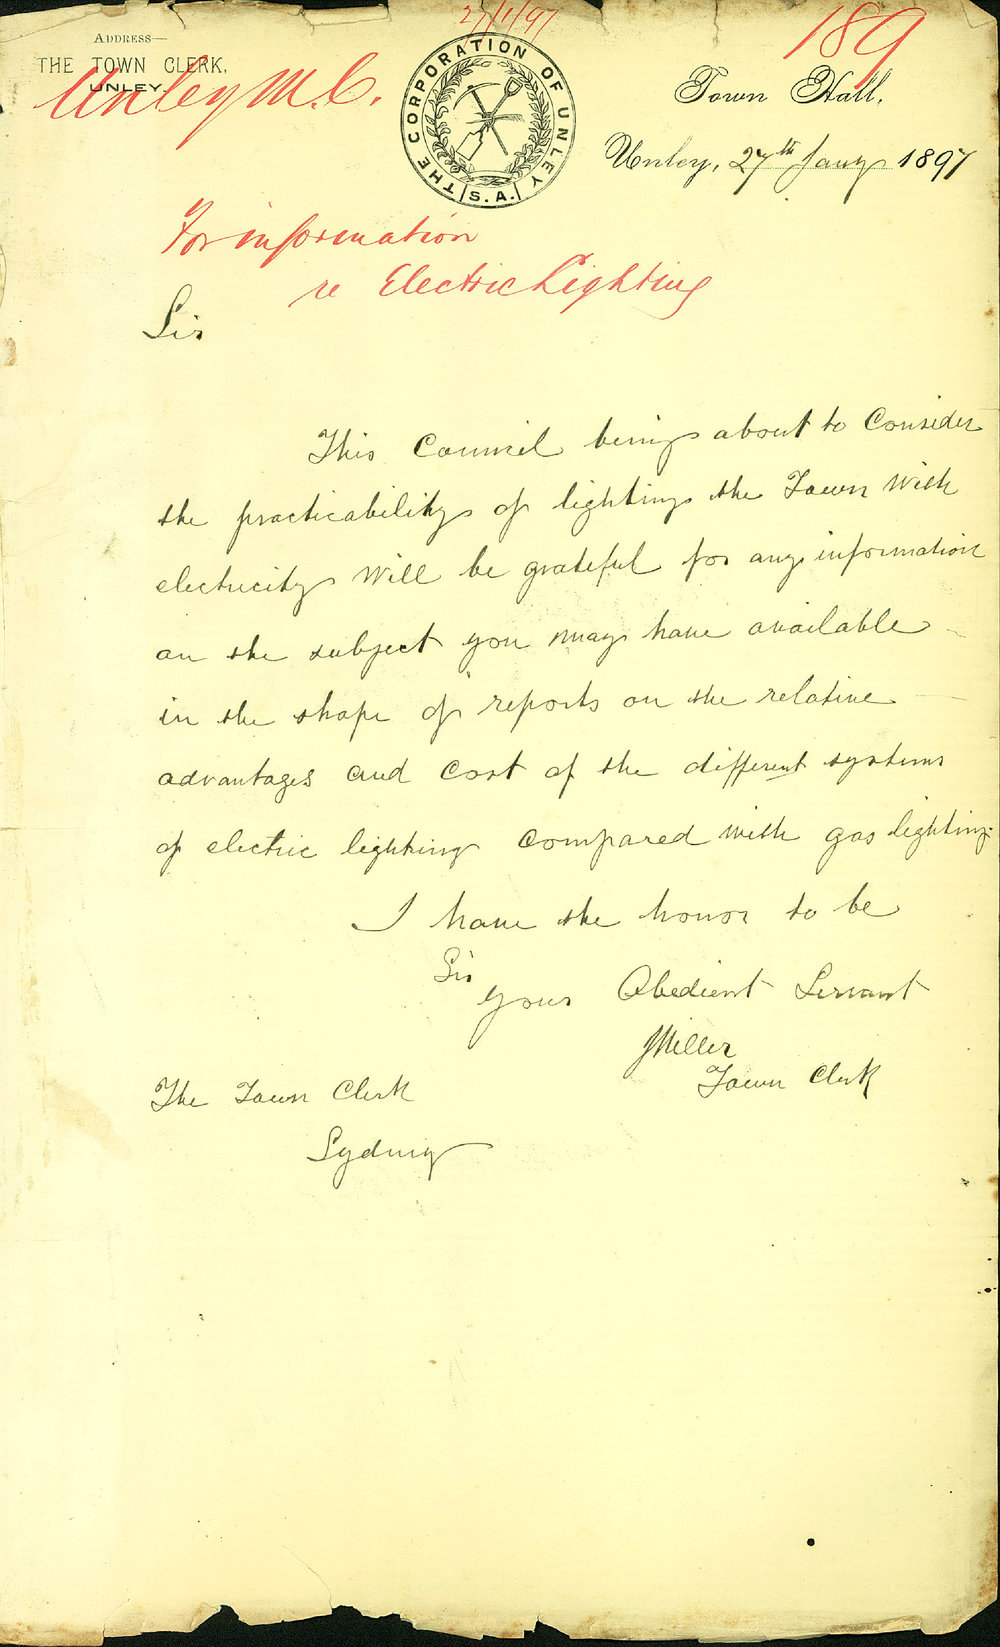 27/1/97
189
ADDRESS—
THE TOWN CLERK,
UNLEY.
Unley M.C.
THE CORPORATION OF UNLEY
S.A.
Town Hall,
Unley, 27th Jany 1897
For information
re Electric Lighting
Sir
This Council being about to Consider
the practicability of lighting the Town with
electricity will be grateful for any information
on the subject you may have available
in the shape of reports on the relative
advantages and cost of the different systems
of electric lighting compared with gas lighting.
I have the honor to be
Sir
Your Obedient Servant
JMiller
Town Clerk
The Town Clerk
Sydney